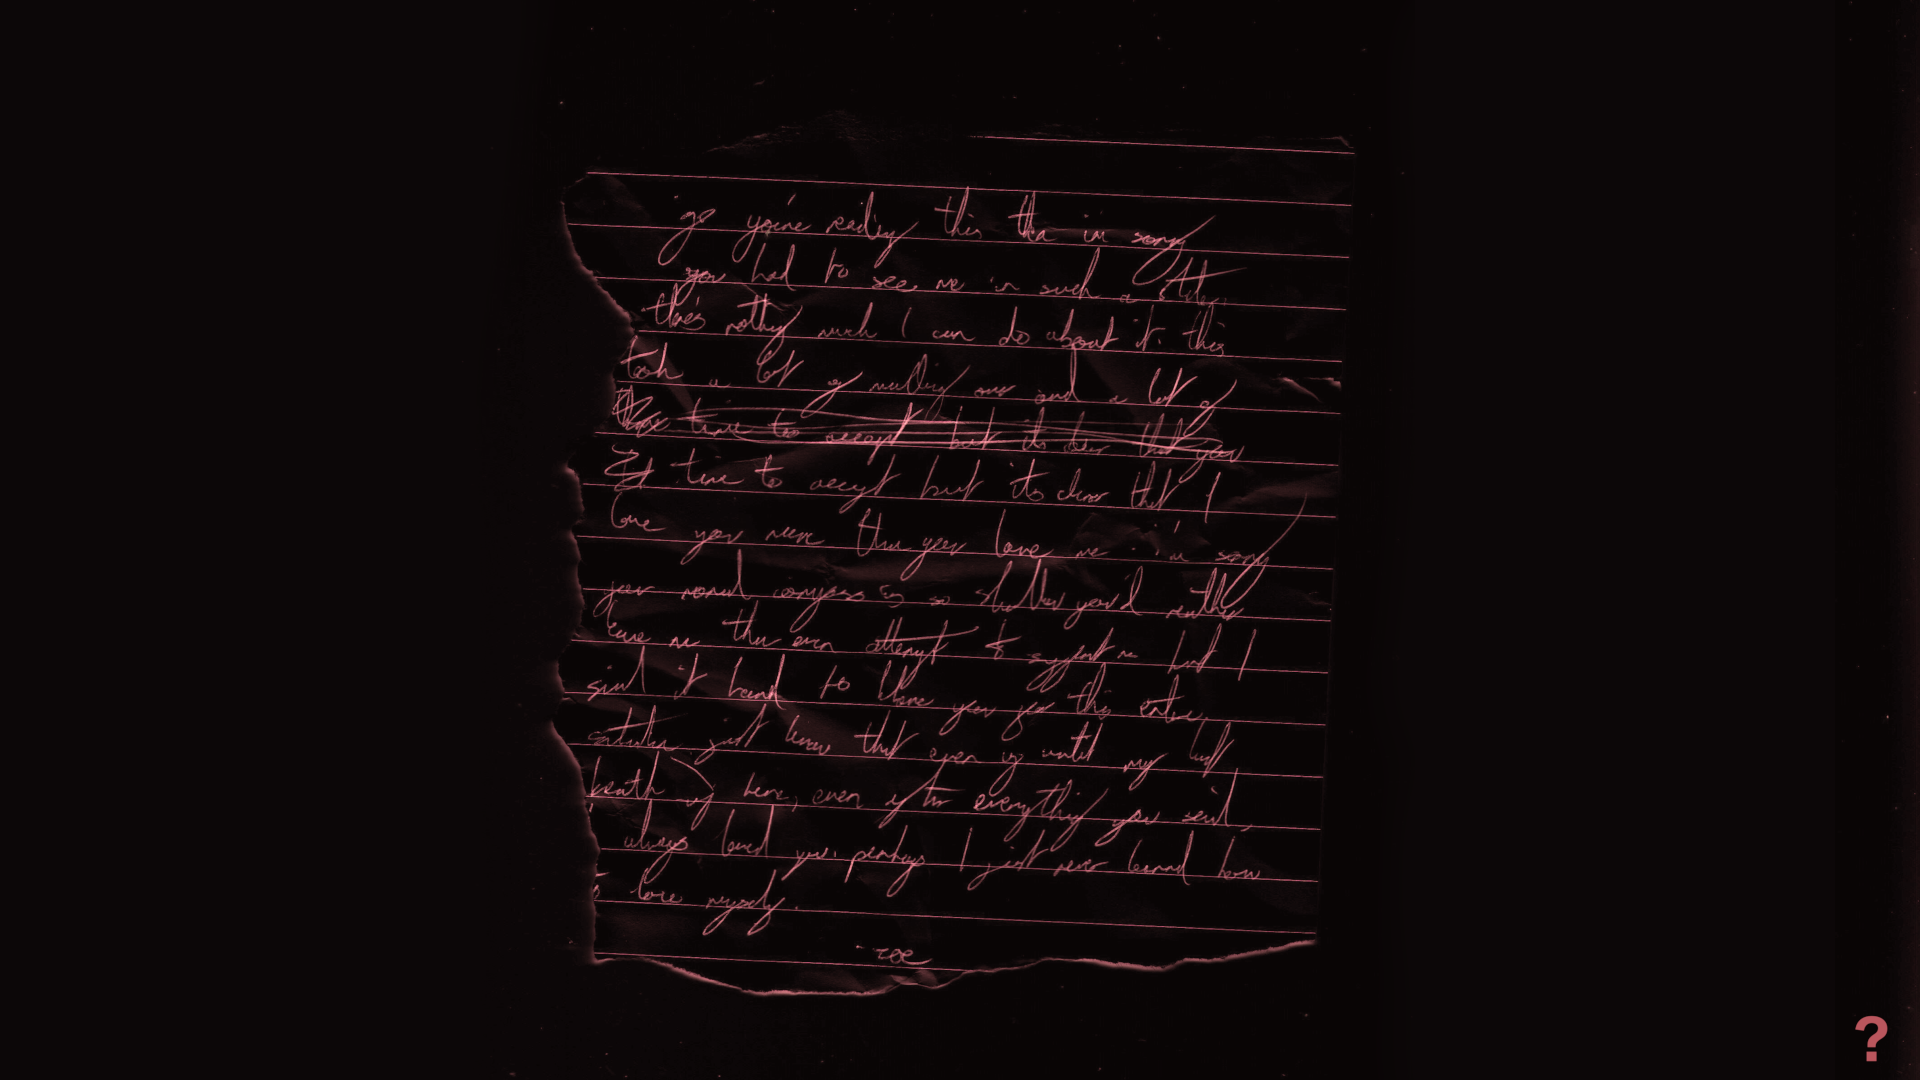 if you're reading this then i'm sorry
you had to see me in such a state.
there's nothing much I can do about it. this
took a lot of mulling over and a lot of
time to accept but its clear that you
time to accept but its clear that I
love you more than you love me. i'm sorry
your moral compass is so shallow you'd rather
leave me than even attempt to support me but I
find it hard to blame you for this entire
situation just know that even up until my last
breath of here, even after everything you said,
i always loved you. perhaps I just never learned how
to love myself.
- zoe
?